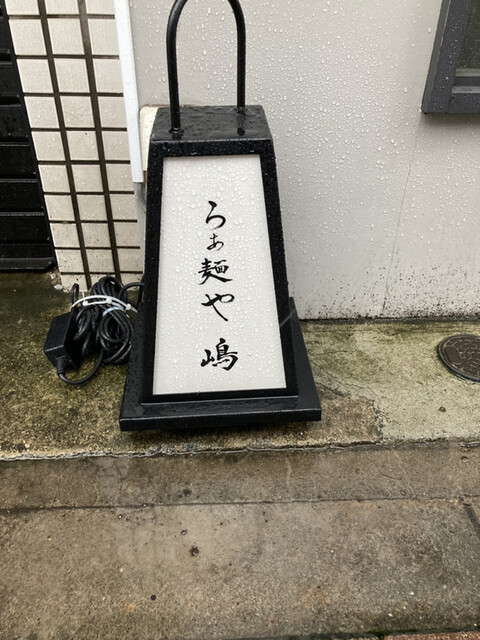 らぁ麺や嶋